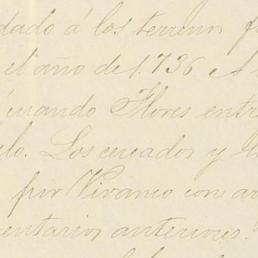 dado á los terrenos
el año de 1.736
cuando Flores entr
lo. Los cercados y
por Vivanco con ar
entarios anteriores.